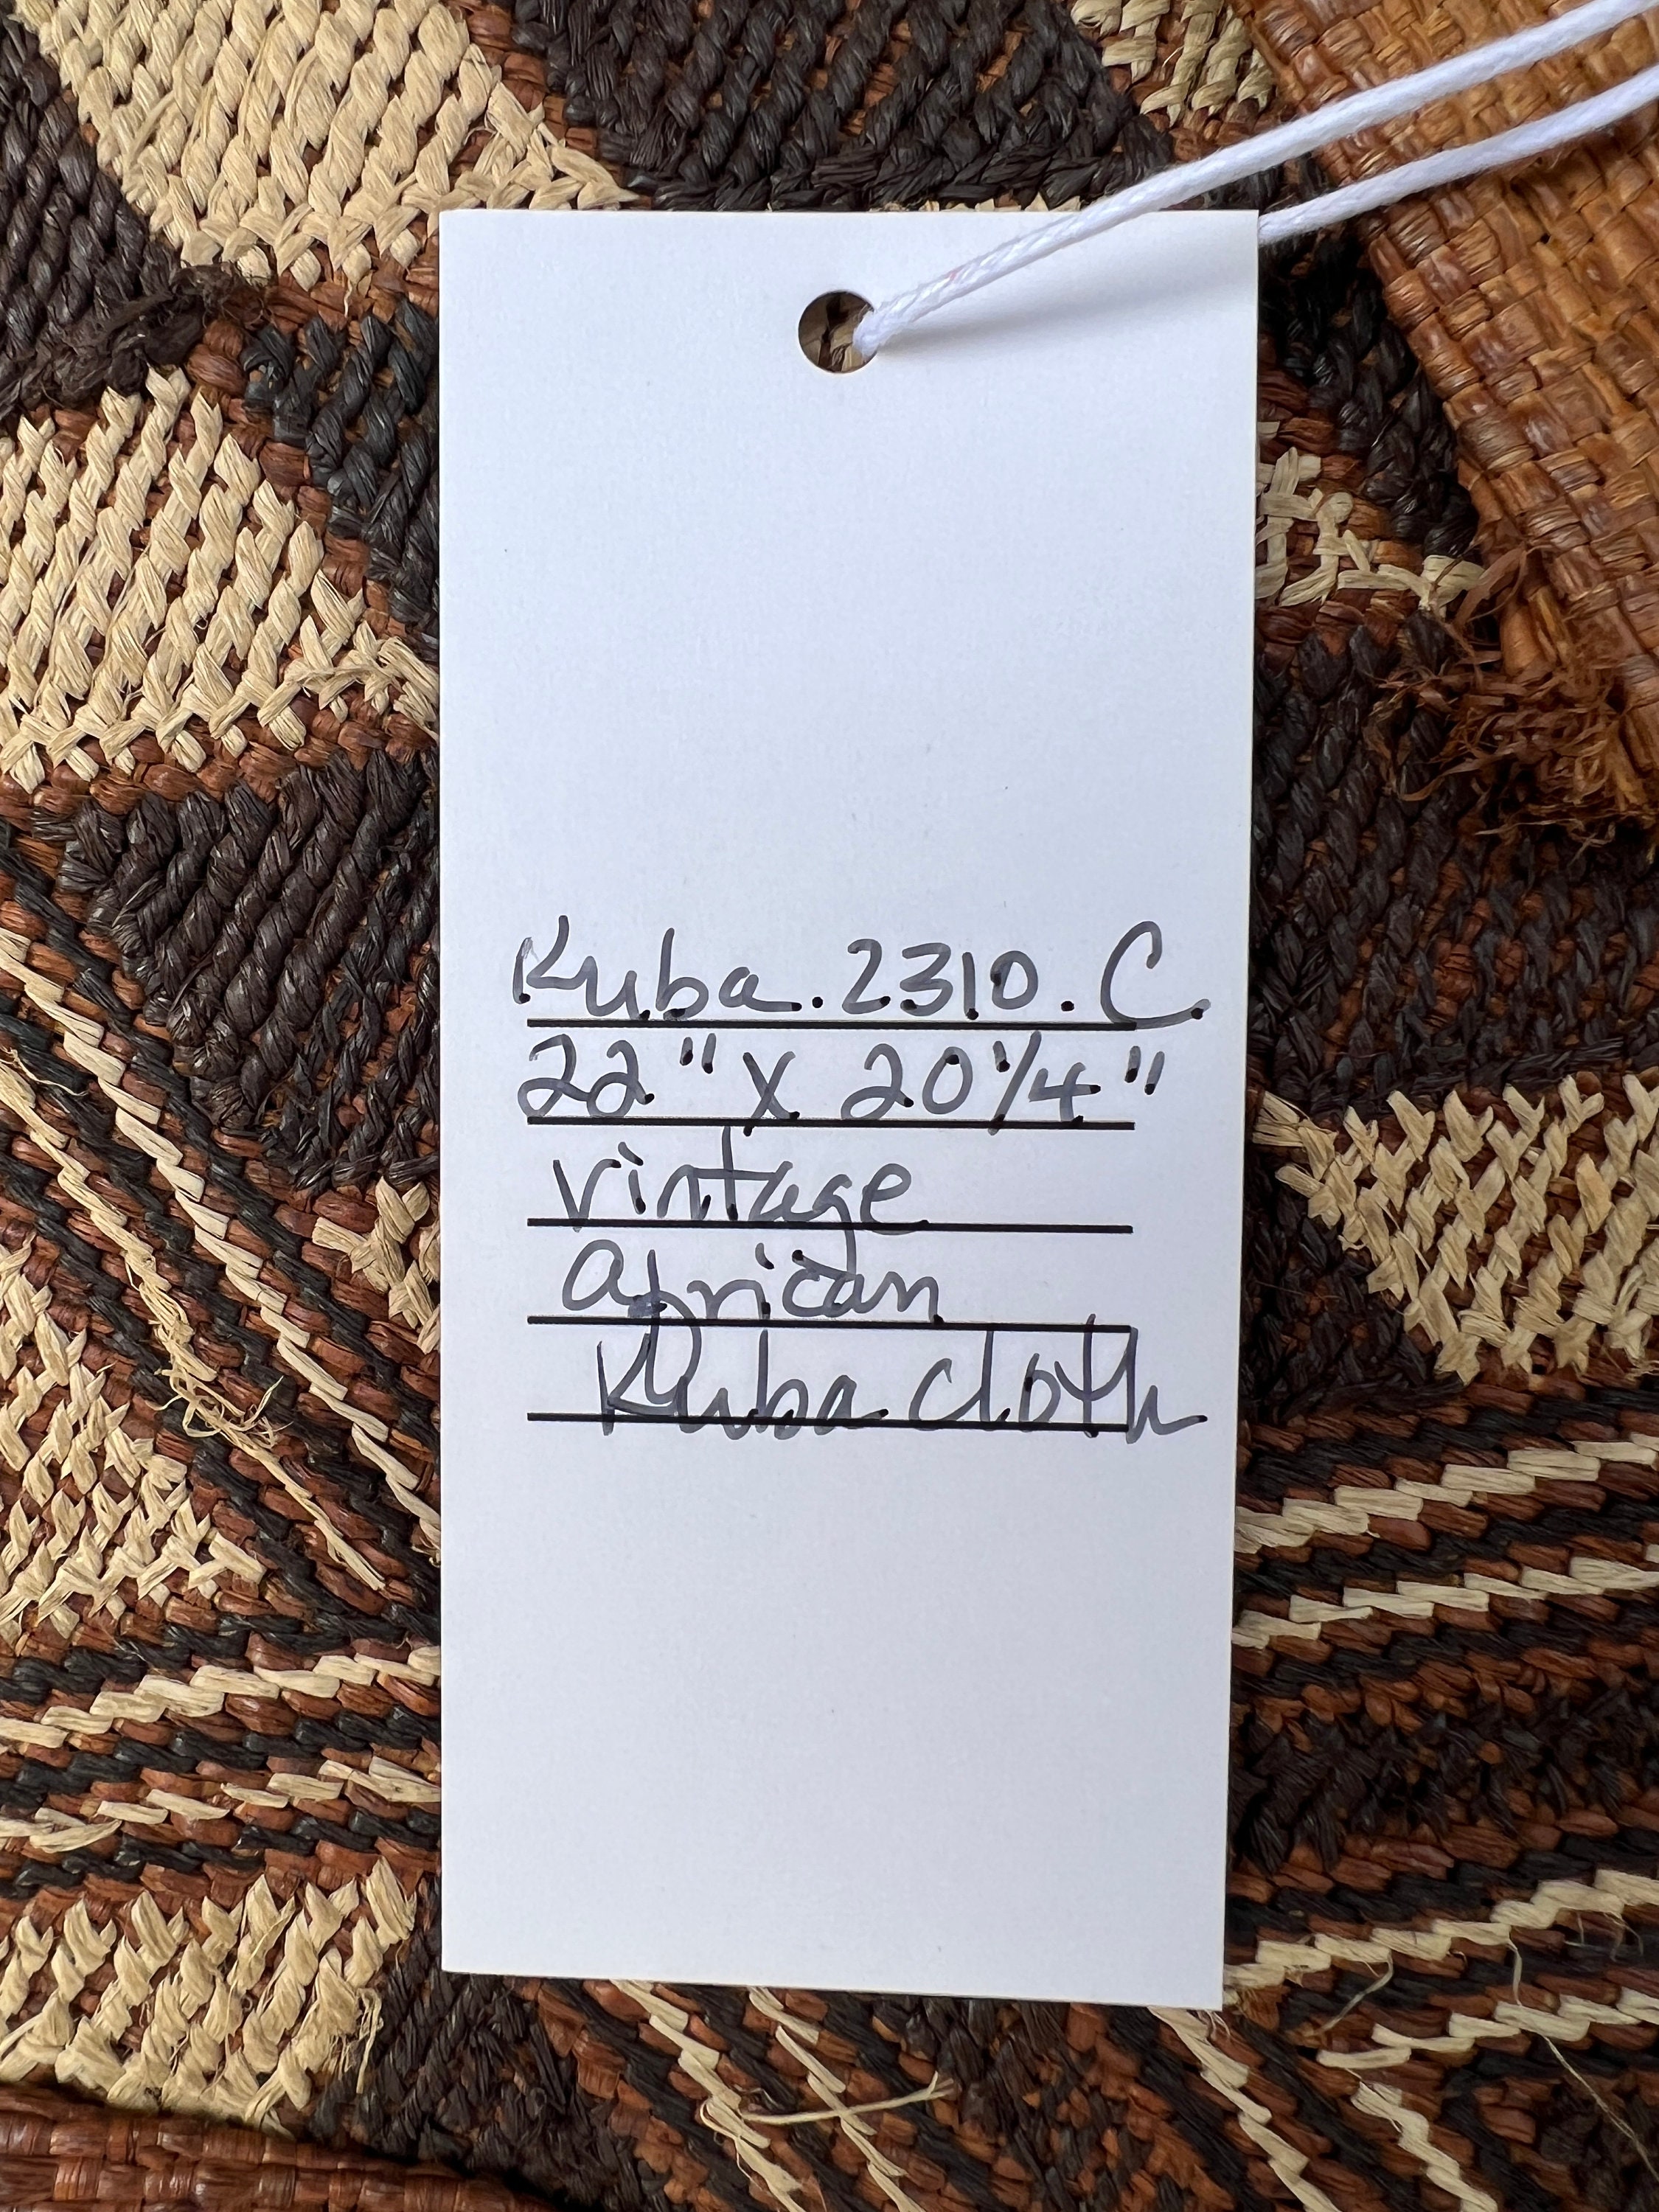 Kuba.2310.C
22" X 20 1/4"
vintage
african
Kuba cloth